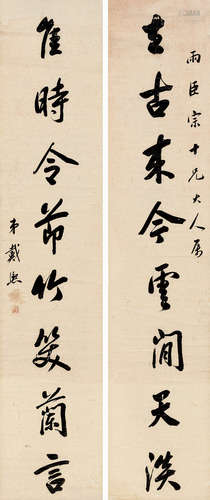 雨臣宗十兄大人屬
亘古來今雲閒天淡
佳時令節竹笑蘭言
弟戴熙